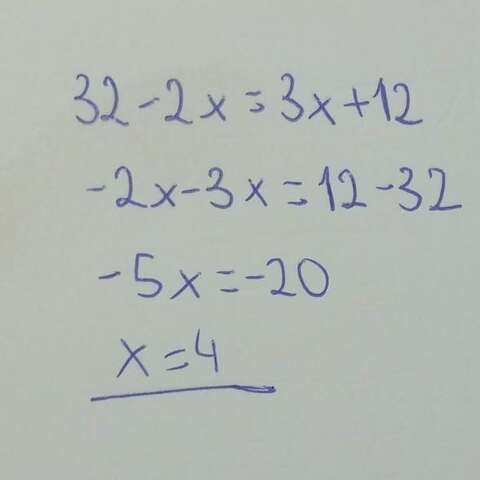 32-2x=3x+12
-2x-3x=12-32
-5x=-20
x=4